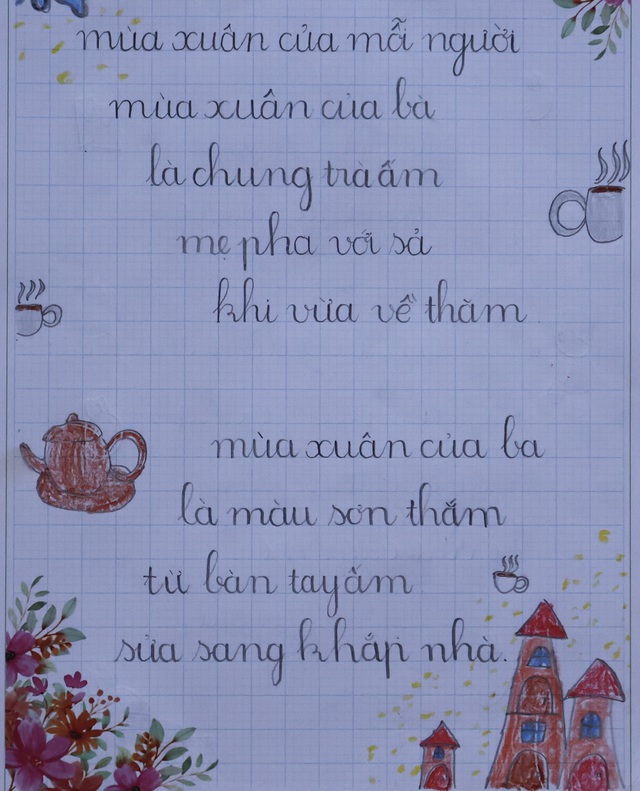 mùa xuân của mỗi người
mùa xuân của bà
là chung trà ấm
mẹ pha với sả
khi vừa về thăm
mùa xuân của ba
là màu sơn thắm
từ bàn tay ấm
sửa sang khắp nhà.